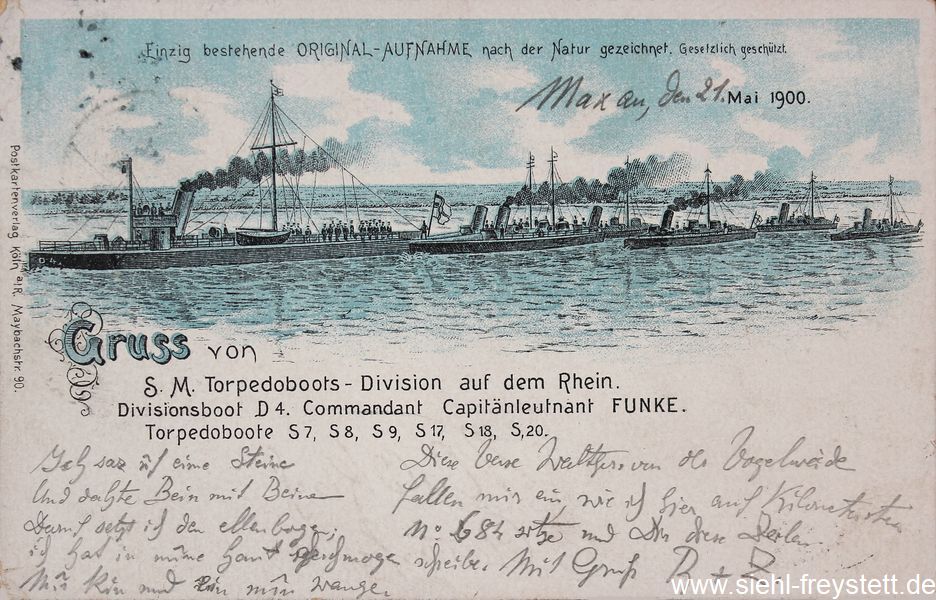 Einzig bestehende ORIGINAL-AUFNAHME nach der Natur gezeichnet. Gesetzlich geschützt.
Maxau, den 21. Mai 1900.
Postkartenverlag Köln a/R. Maybachstr. 90.
D 4.
Gruss von
S. M. Torpedoboots-Division auf dem Rhein.
Divisionsboot D 4. Commandant Capitänleutnant FUNKE.
Torpedoboote S 7, S 8, S 9, S 17, S 18, S, 20.
Ich saz ûf eime Steine
Und dahte Bein mit Beine
Daruf setzt ich den ellenbogen;
ich hat in mîne hant gesmoge
Mîn kin und ein mîn wange.
Diese Verse Walthers von der Vogelweide
fallen mir ein, wie ich hier auf Kilometerstein
No 684 sitze und Dir diese Zeilen
schreibe. Mit Gruß
www.siehl-freystett.de